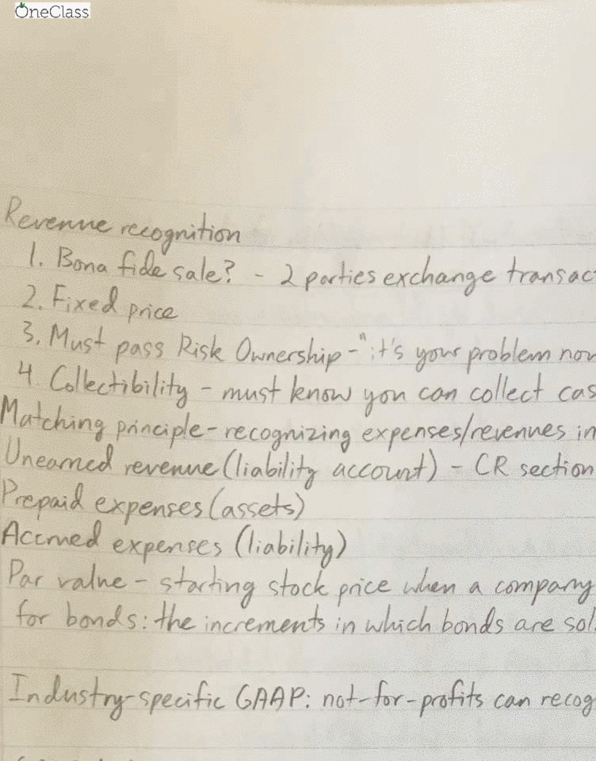 OneClass
Revenue recognition
1. Bona fide sale? - 2 parties exchange transac
2. Fixed price
3. Must pass Risk Ownership - "it's your problem now
4. Collectibility - must know you can collect cas
Matching principle - recognizing expenses/revenues in
Unearned revenue (liability account) - CR section
Prepaid expenses (assets)
Accrued expenses (liability)
Par value - starting stock price when a company
for bonds: the increments in which bonds are sol
Industry-specific GAAP: not-for-profits can recog